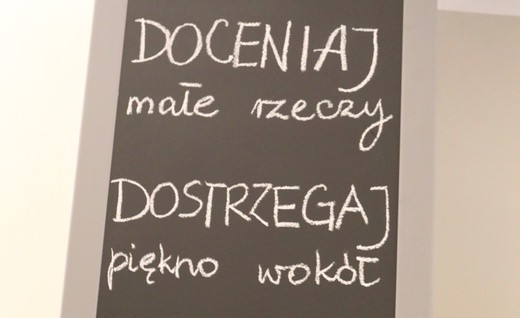 DOCENIAJ
małe rzeczy
DOSTRZEGAJ
piękno wokół